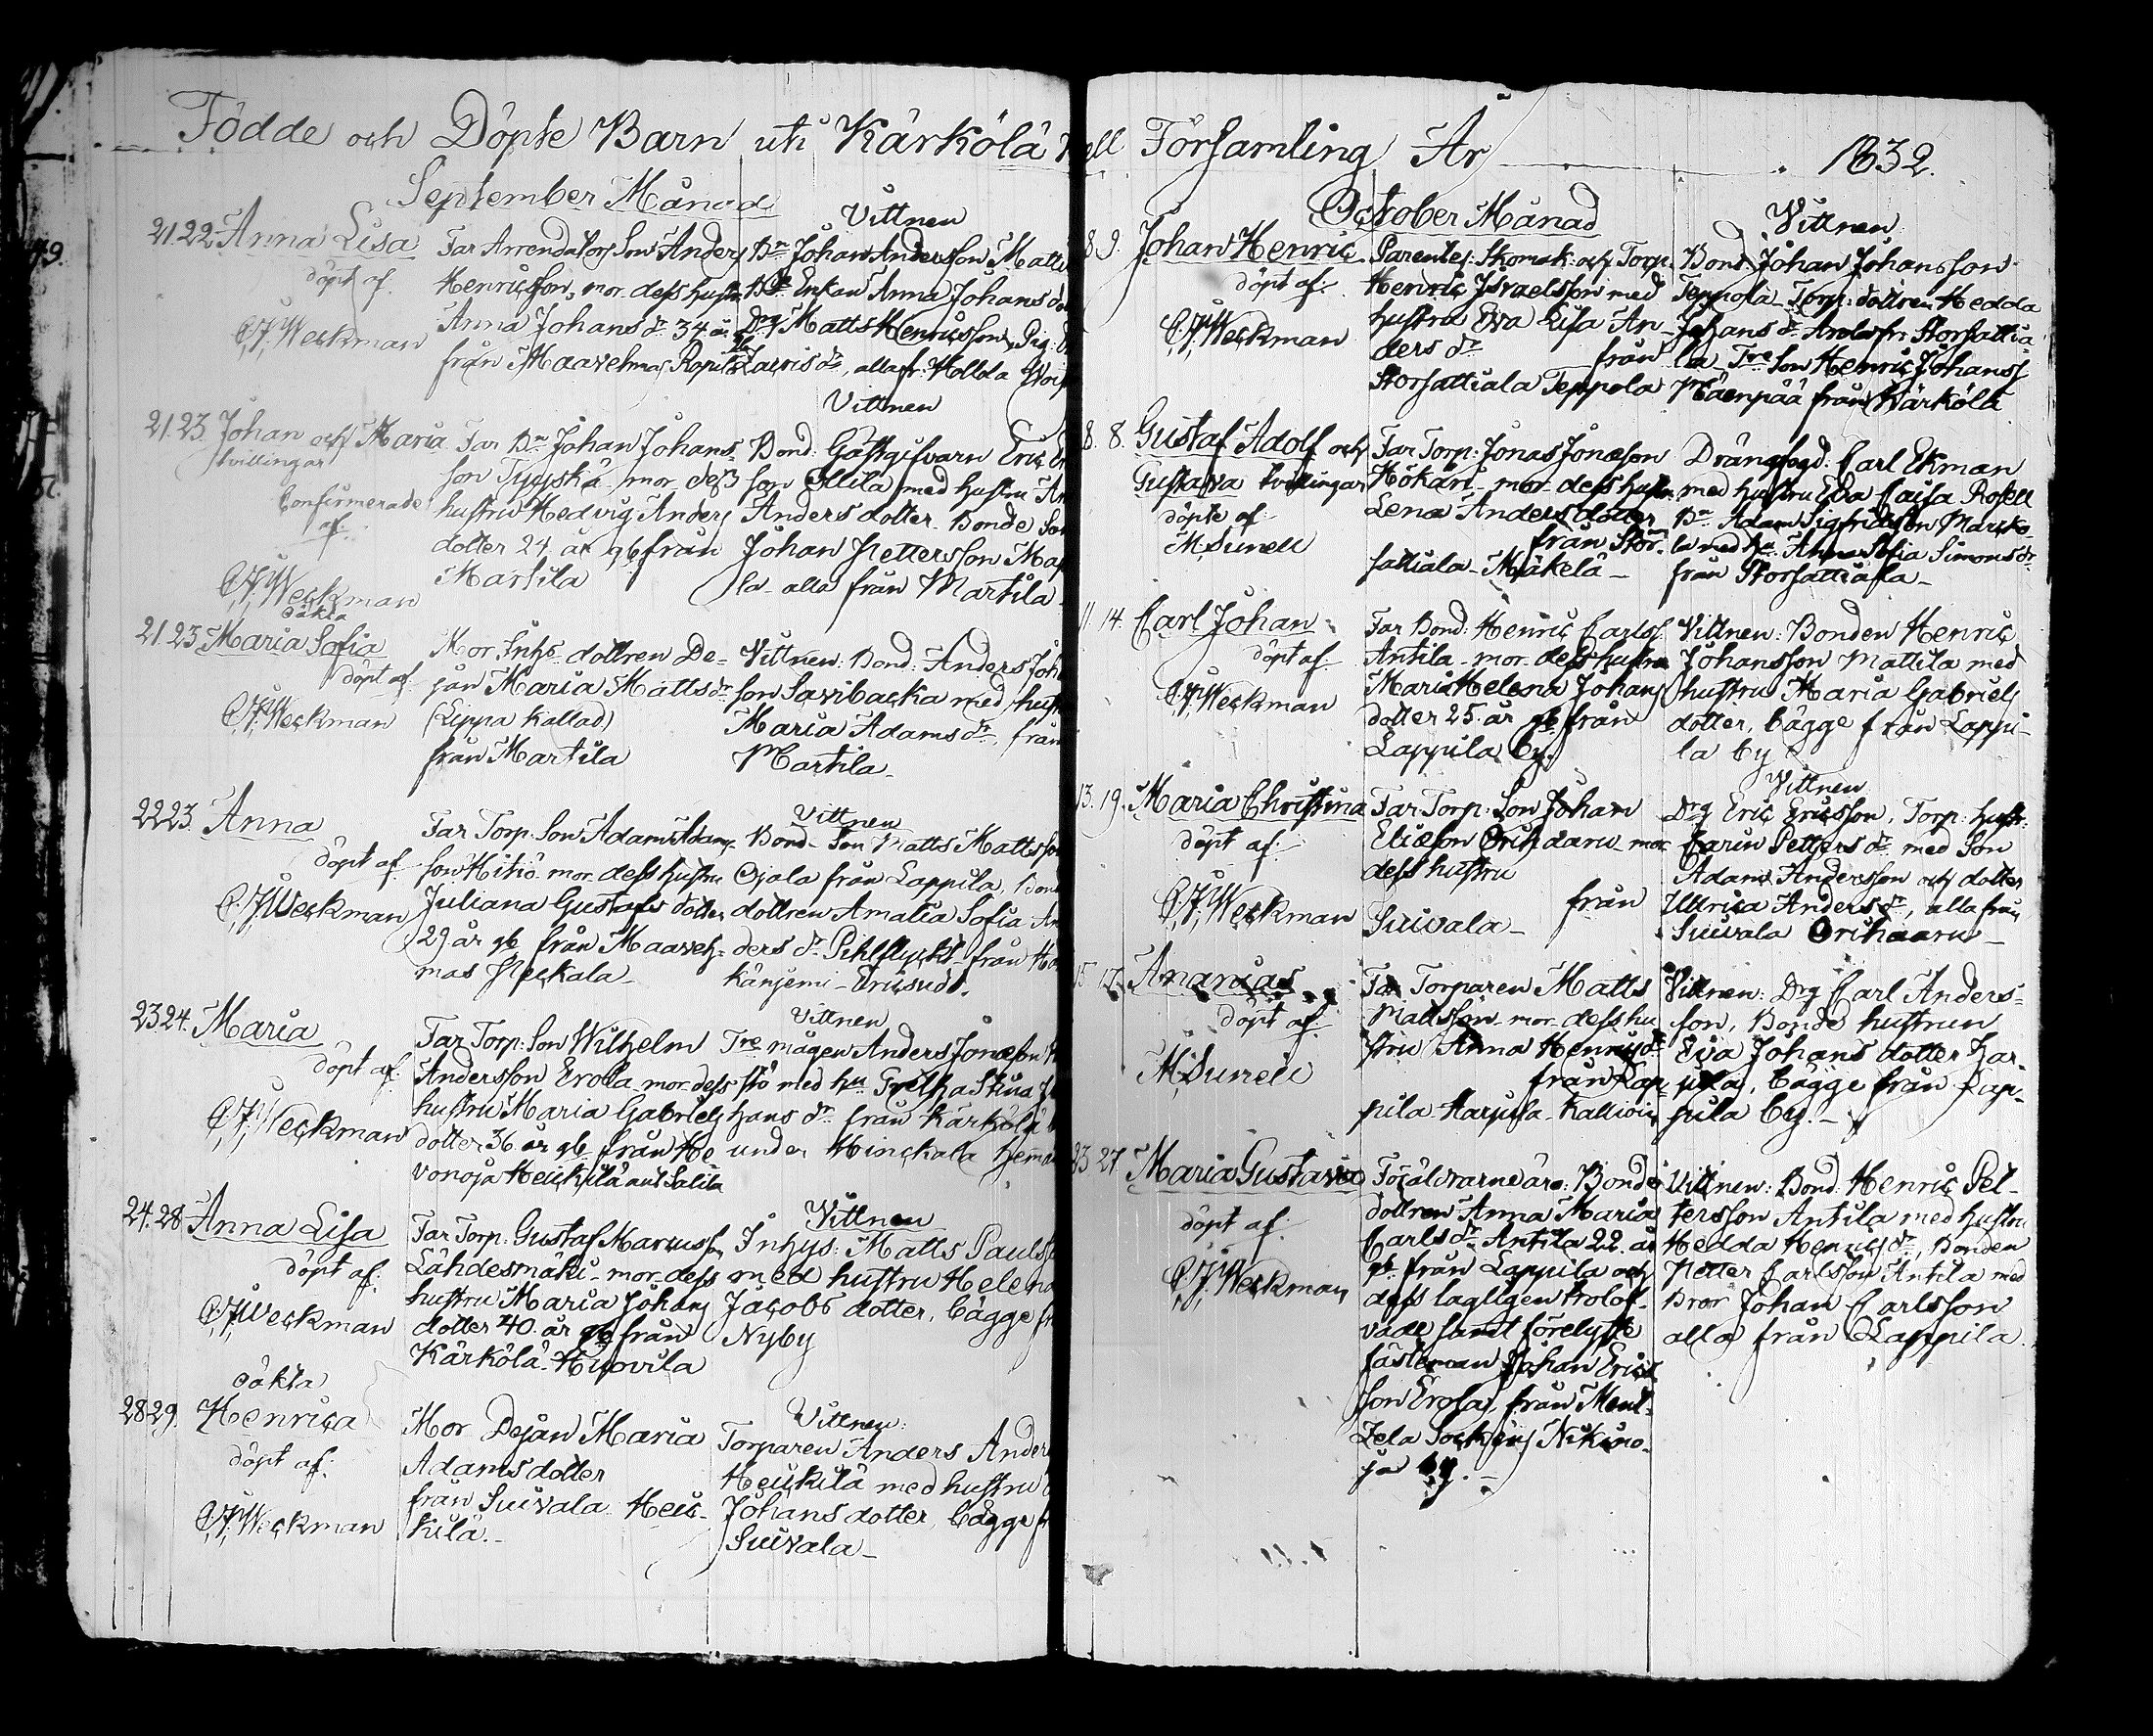 Födde och Döpte Barn uti Kärkölä Kell Församling År 1832.
September Månad
Vittnen
21. 22. Anna Lisa
döpt af
C.J. Weckman
Far Arrendators Son Anders
Henricsson, mor dess hustru
Anna Johans dr 34 år
från Maavehmas Ropula
Bn Johan Andersson Matti
Bde Enkan Anna Johans do
Drg Matts Henricsson, Pig.
Lauris dr, alla fr. Hollola
Vittnen
21. 23. Johan och Maria
tvillingar
Confirmerade
af
C.J. Weckman
Far Bn Johan Johans-
son Tyyskä mor dess
hustru Hedvig Anders
dotter 24 år gb från
Martila
Bond. Gästgifvarn Eric
son Ollila med hustru
Anders dotter Bonde Son
Johan Pettersson
la alla från Martila
oäkta
21. 23. Maria Sofia
döpt af
C.J. Weckman
Mor Inhs. dottren De-
jan Maria Matts dr
(Lippa kallad)
från Martila
Vittnen: Bond. Anders Joh
son Savibacka med hust
Maria Adams dr, från
Martila
22. 23. Anna
döpt af
C.J. Weckman
Far Torp. Son Adam Adams
son Hitiö mor dess hustru
Juliana Gustafs dotter
29 år gb från Maaveh-
mas Neckala
Vittnen
Bond. Son Matts Matts son
Ojala från Lappila, Bond
dottren Amalia Sofia An
ders dr Pihlflyckt från
känjemi Ericsudd.
23. 24. Maria
döpt af
C.J. Weckman
Far Torp. Son Wilhelm
Andersson Erola mor dess
hustru Maria Gabriels
dotter 36 år gb från He
vonoja Heickilä aut Salila
Vittnen
Tre mågen Anders Jonasson
stö med hu Gretha Stina
hans dr från Kärkölä
under Hinckala hemma
24. 28. Anna Lisa
döpt af:
C.J. Weckman
Far Torp. Gustaf Marcuss.
Lähdesmäki mor dess
hustru Maria Johans
dotter 40 år gb från
Kärkölä Huovila
Vittnen
Inhys: Matts Pauls
med hustru Helena
Jacobs dotter, bägge fr
Nyby
oäkta
28. 29. Henrica
döpt af:
C.J. Weckman
Mor Dejan Maria
Adams dotter
från Suivala Heic-
kilä.
Vittnen:
Torparen Anders Ander
Heickilä med hustru
Johans dotter, bägge fr
Suivala
October Månad
Vittnen
8. 9. Johan Henric
döpt af:
C.J. Weckman
Parentes: Skomak: och Torp.
Henric Israelsson med
hustru Eva Lisa An-
ders dr från
Storsattiala Teppola
Bond. Johan Johansson
Teppola Torp: dottren Hedda
Johans dr Arola fr. Storsattia
la Tre Son Henric Johanss
Mäenpää från Kärkölä
8. 8. Gustaf Adolf och
Gustava tvillingar
döpte af:
M. Sunell
Far Torp: Jonas Jonasson
Hökäri mor dess hustru
Lena Anders dotter
från Stor-
sattiala Mäkelä
Drängfogd: Carl Ekman
med hustru Eva Caisa Rosell
Bn Adam Sigfridsson Marcko-
la med hu Anna Sofia Simons dr
från Storsattiala
11. 14. Carl Johan
döpt af
C.J. Weckman
Far Bond: Henric Carlss
Antila mor dess hustru
Maria Helena Johans
dotter 25 år gb från
Lappila by.
Vittnen: Bonden Henric
Johansson Mattila med
hustru Maria Gabriels
dotter, bägge från Lappi-
la by
13. 19. Maria Christina
döpt af:
C.J. Weckman
Far Torp: Son Johan
Eliæson Orihaaru mor
dess hustru
från
Suivala
Vittnen
Drg Eric Ericsson, Torp: hustr:
Carin Petters dr med Son
Adam Andersson och dotter
Ullrica Anders dr, alla från
Suivala Orihaaru
15. 17. Ananias
döpt af
M. Sunell
Far Torparen Matts
Mattsson mor dess hu
stru Anna Henrics dr
från Lap
pila Harjula Kallioi
Vittnen: Drg Carl Anders-
son, Bonde hustrun
Eva Johans dotter Har
jula, bägge från Lap-
pila by.
23. 27. Maria Gustava
döpt af:
C.J. Weckman
Föräldrarne äro: Bonde
dottren Anna Maria
Carls dr Antila 22 år
gb från Lappila och
dess lagligen trolof-
vade samt förelyste
fästeman Johan Erics
son Erola, från Ment-
zela Sockens Nikino-
ja by.
Vittnen: Bond Henric Pet-
tersson Antila med hustru
Hedda Henrics dr, Bonden
Petter Carlsson Antila med
Bror Johan Carlsson
alla från Lappila.